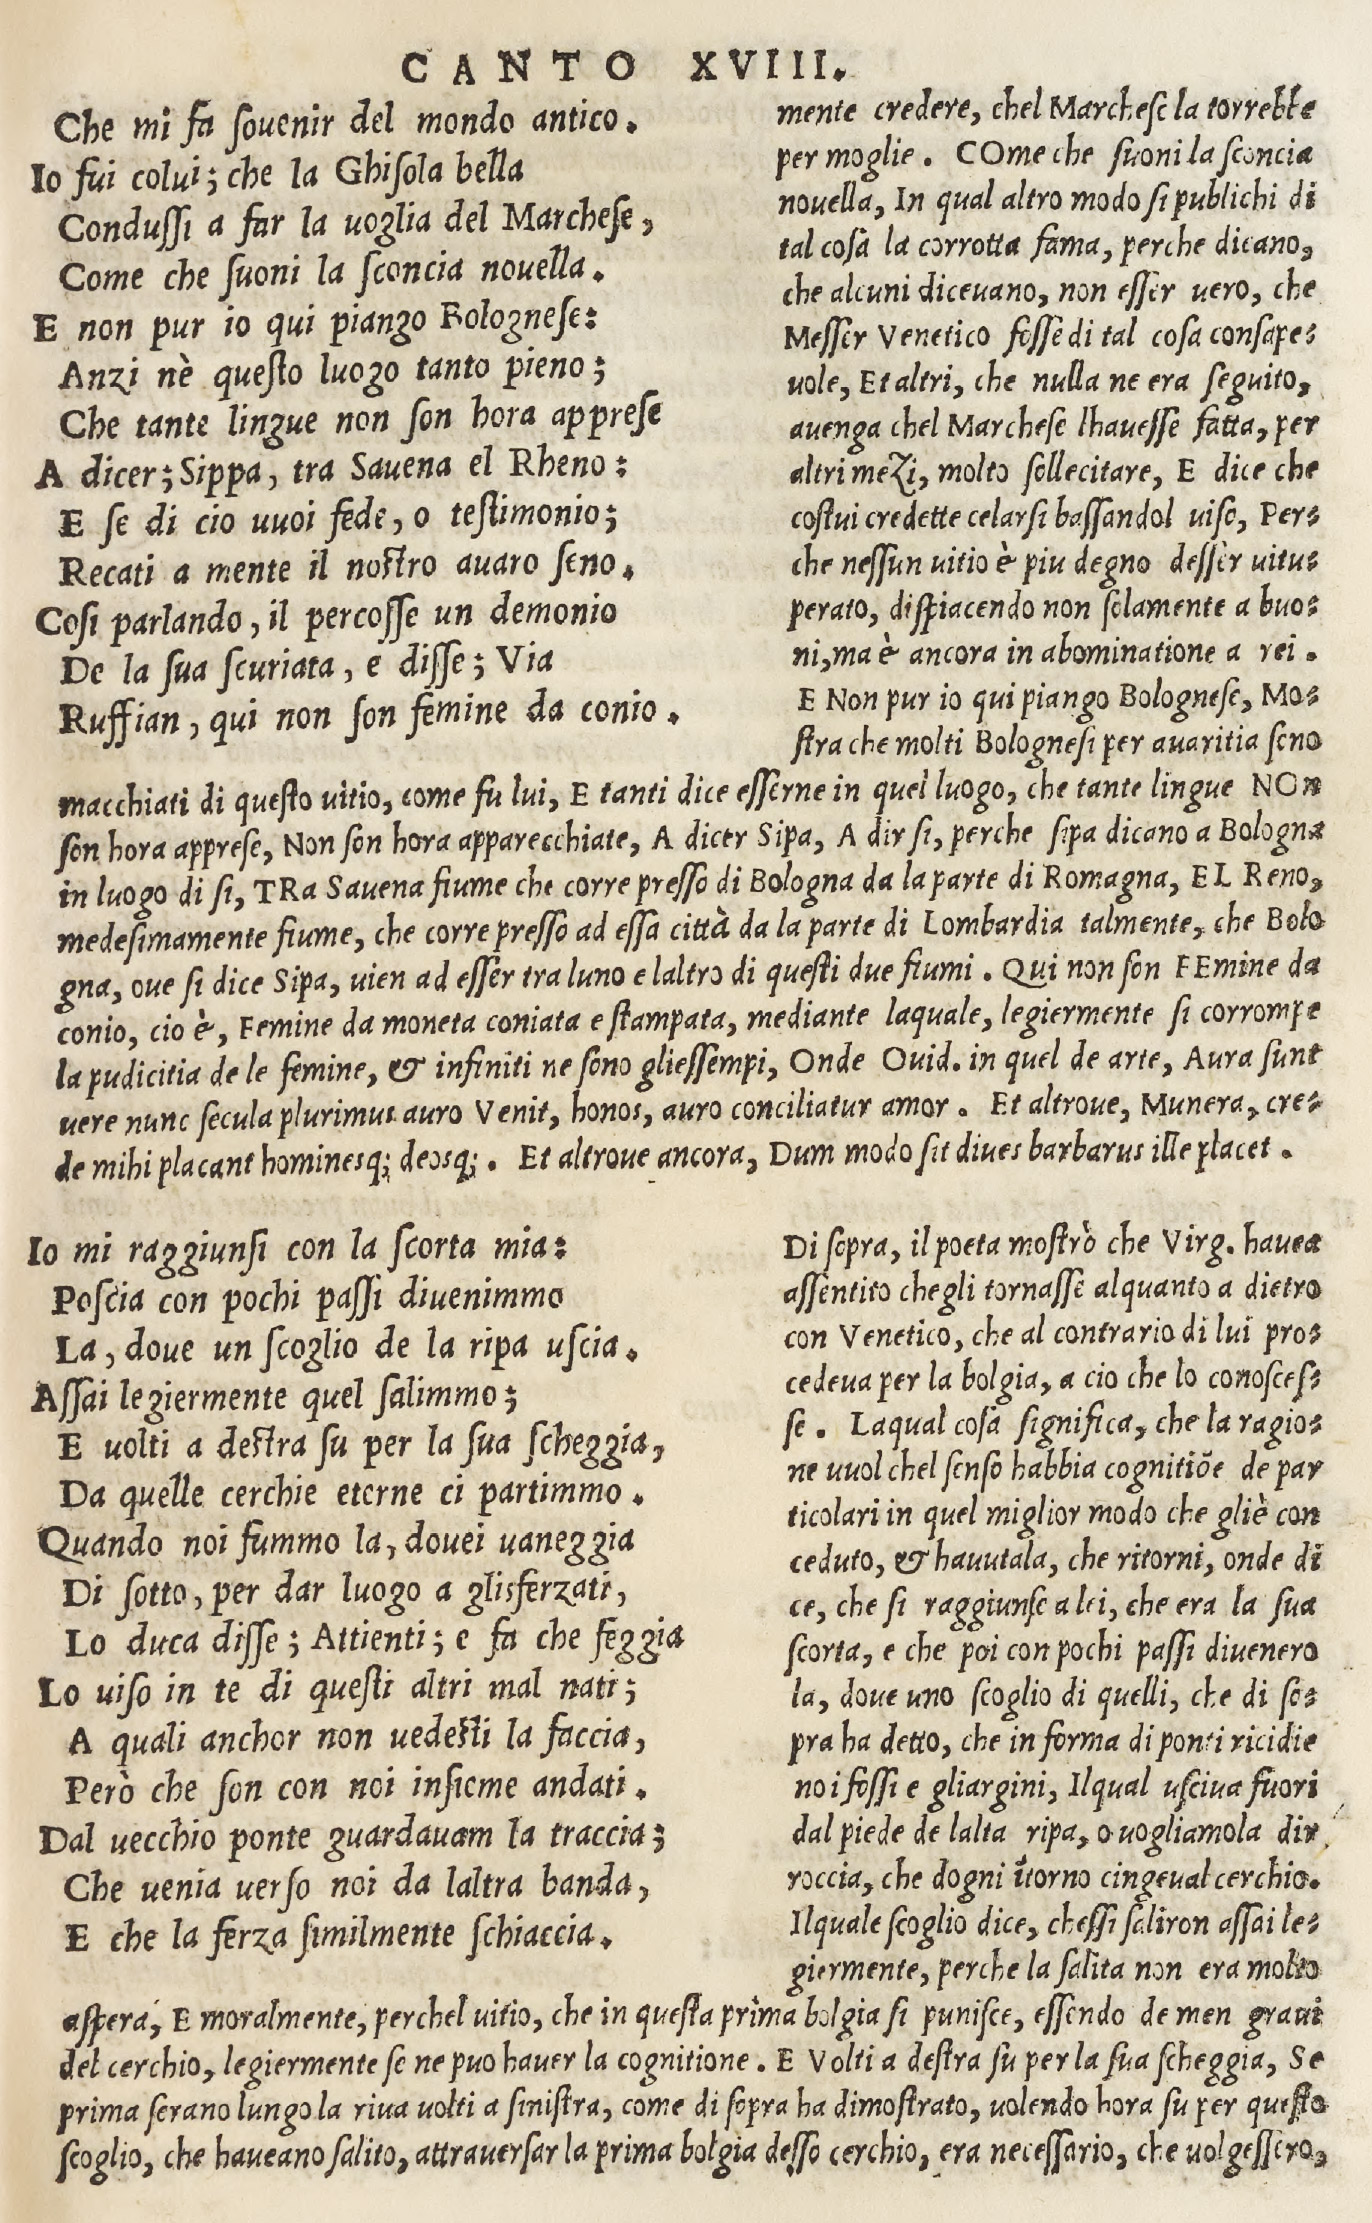 CANTO XVIII.
Che mi fa souenir del mondo antico.
Io fui colui; che la Ghisola bella
Condussi a far la uoglia del Marchese,
Come che suoni la sconcia nouella.
E non pur io qui piango Bolognese:
Anzi nè questo luogo tanto pieno;
Che tante lingue non son hora apprese
A dicer; Sippa, tra Sauena el Rheno:
E se di cio uuoi fede, o testimonio;
Recati a mente il nostro auaro seno.
Cosi parlando, il percosse un demonio
De la sua scuriata, e disse; Via
Ruffian, qui non son femine da conio.
mente credere, chel Marchese la torrebbe
per moglie. COme che suoni la sconcia
nouella, In qual altro modo si publichi di
tal cosa la corrotta fama, perche dicano,
che alcuni diceuano, non esser uero, che
Messer Venetico fosse di tal cosa consape=
uole, Et altri, che nulla ne era seguito,
auenga chel Marchese lhauesse fatta, per
altri mezi, molto sollecitare, E dice che
costui credette celarsi bassandol uiso, Per=
che nessun uitio è piu degno desser uitu=
perato, dispiacendo non solamente a buo=
ni, ma è ancora in abominatione a rei.
E Non pur io qui piango Bolognese, Mo=
stra che molti Bolognesi per auaritia seno
macchiati di questo uitio, come fu lui, E tanti dice esserne in quel luogo, che tante lingue NOn
son hora apprese, Non son hora apparecchiate, A dicer Sipa, A dir si, perche sipa dicano a Bologna
in luogo di si, TRa Sauena fiume che corre presso di Bologna da la parte di Romagna, EL Reno,
medesimamente fiume, che corre presso ad essa città da la parte di Lombardia talmente, che Bolo
gna, oue si dice Sipa, uien ad esser tra luno e laltro di questi due fiumi. Qui non son FEmine da
conio, cio è, Femine da moneta coniata e stampata, mediante laquale, legiermente si corrompe
la pudicitia de le femine, & infiniti ne sono gliessempi, Onde Ouid. in quel de arte, Aura sunt
uere nunc secula plurimus auro Venit, honos, auro conciliatur amor. Et altroue, Munera, cre=
de mihi placant hominesq; deosq;. Et altroue ancora, Dum modo sit diues barbarus ille placet.
Io mi raggiunsi con la scorta mia:
Poscia con pochi passi diuenimmo
La, doue un scoglio de la ripa uscia.
Assai legiermente quel salimmo;
E uolti a destra su per la sua scheggia,
Da quelle cerchie eterne ci partimmo.
Quando noi fummo la, douei uaneggia
Di sotto, per dar luogo a glisferzati,
Lo duca disse; Attienti; e fa che feggia
Lo uiso in te di questi altri mal nati;
A quali anchor non uedesti la faccia,
Però che son con noi insieme andati.
Dal uecchio ponte guardauam la traccia;
Che uenia uerso noi da laltra banda,
E che la ferza similmente schiaccia.
Di sopra, il poeta mostrò che Virg. hauea
assentito chegli tornasse alquanto a dietro
con Venetico, che al contrario di lui pro=
cedeua per la bolgia, a cio che lo conosces=
se. Laqual cosa significa, che la ragio=
ne uuol chel senso habbia cognitiōe de par
ticolari in quel miglior modo che gliè con
ceduto, & hauutala, che ritorni, onde di
ce, che si raggiunse a lei, che era la sua
scorta, e che poi con pochi passi diuenero
la, doue uno scoglio di quelli, che di so=
pra ha detto, che in forma di ponti ricidie
no i fossi e gliargini, Ilqual usciua fuori
dal piede de lalta ripa, o uogliamola dir
roccia, che dogni ītorno cingeual cerchio.
Ilquale scoglio dice, chessi saliron assai le=
giermente, perche la salita non era molto
aspera, E moralmente, perchel uitio, che in questa prima bolgia si punisce, essendo de men graui
del cerchio, legiermente se ne puo hauer la cognitione. E Volti a destra su per la sua scheggia, Se
prima serano lungo la riua uolti a sinistra, come di sopra ha dimostrato, uolendo hora su per questo
scoglio, che haueano salito, attrauersar la prima bolgia desso cerchio, era necessario, che uolgessero,